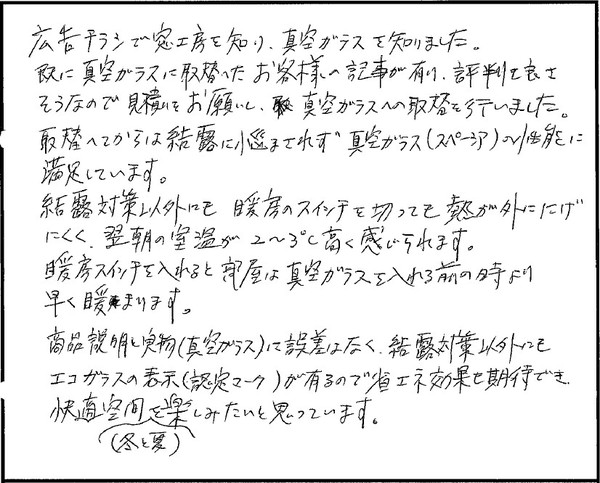 広告チラシで窓工房を知り、真空ガラスを知りました。
既に真空ガラスに取替へたお客様の記事が有り、評判も良さ
そうなので見積をお願いし、真空ガラスへの取替を行いました。
取替へてからは結露に悩まされず真空ガラス(スペーシア)の性能に
満足しています。
結露対策以外にも暖房のスイッチを切っても熱が外ににげ
にくく、翌朝の室温が2〜3℃高く感じられます。
暖房スイッチを入れると部屋は真空ガラスを入れる前の時より
早く暖まります。
商品説明と実物(真空ガラス)に誤差はなく、結露対策以外にも
エコガラスの表示(認定マーク)が有るので省エネ効果も期待でき、
快適空間を楽しみたいと思っています。
(冬と夏)